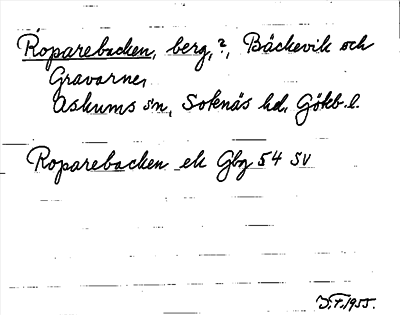 Roparebacken, berg, ?, Bäckevik och
Gravarne,
Askums sn, Sotenäs hd, Götcb. l.
Roparebacken ek Gbg 54 SV
J.F. 1955.